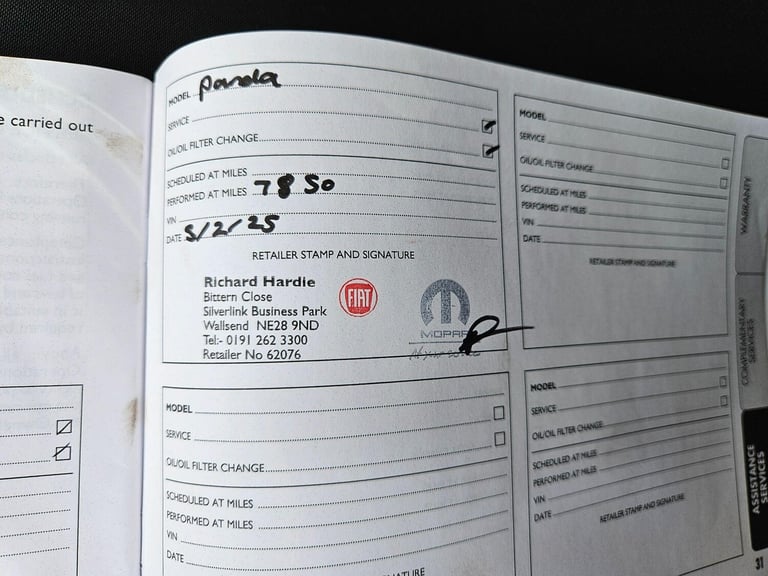 e carried out
MODEL Panda
SERVICE
OIL/OIL FILTER CHANGE
SCHEDULED AT MILES
PERFORMED AT MILES 7850
VIN
DATE 5/2/25
RETAILER STAMP AND SIGNATURE
Richard Hardie
Bittern Close
Silverlink Business Park
Wallsend NE28 9ND
Tel:- 0191 262 3300
Retailer No 62076
FIAT
MOPAR
MODEL
SERVICE
OIL/OIL FILTER CHANGE
SCHEDULED AT MILES
PERFORMED AT MILES
VIN
DATE
RETAILER STAMP AND SIGNATURE
MODEL
SERVICE
OIL/OIL FILTER CHANGE
SCHEDULED AT MILES
PERFORMED AT MILES
VIN
DATE
URE
MODEL
SERVICE
OIL/OIL FILTER CHANGE
SCHEDULED AT MILES
PERFORMED AT MILES
VIN
DATE
RETAILER STAMP AND SIGNATURE
WARRANTY
COMPLEMENTARY
SERVICES
ASSISTANCE
SERVICES
31